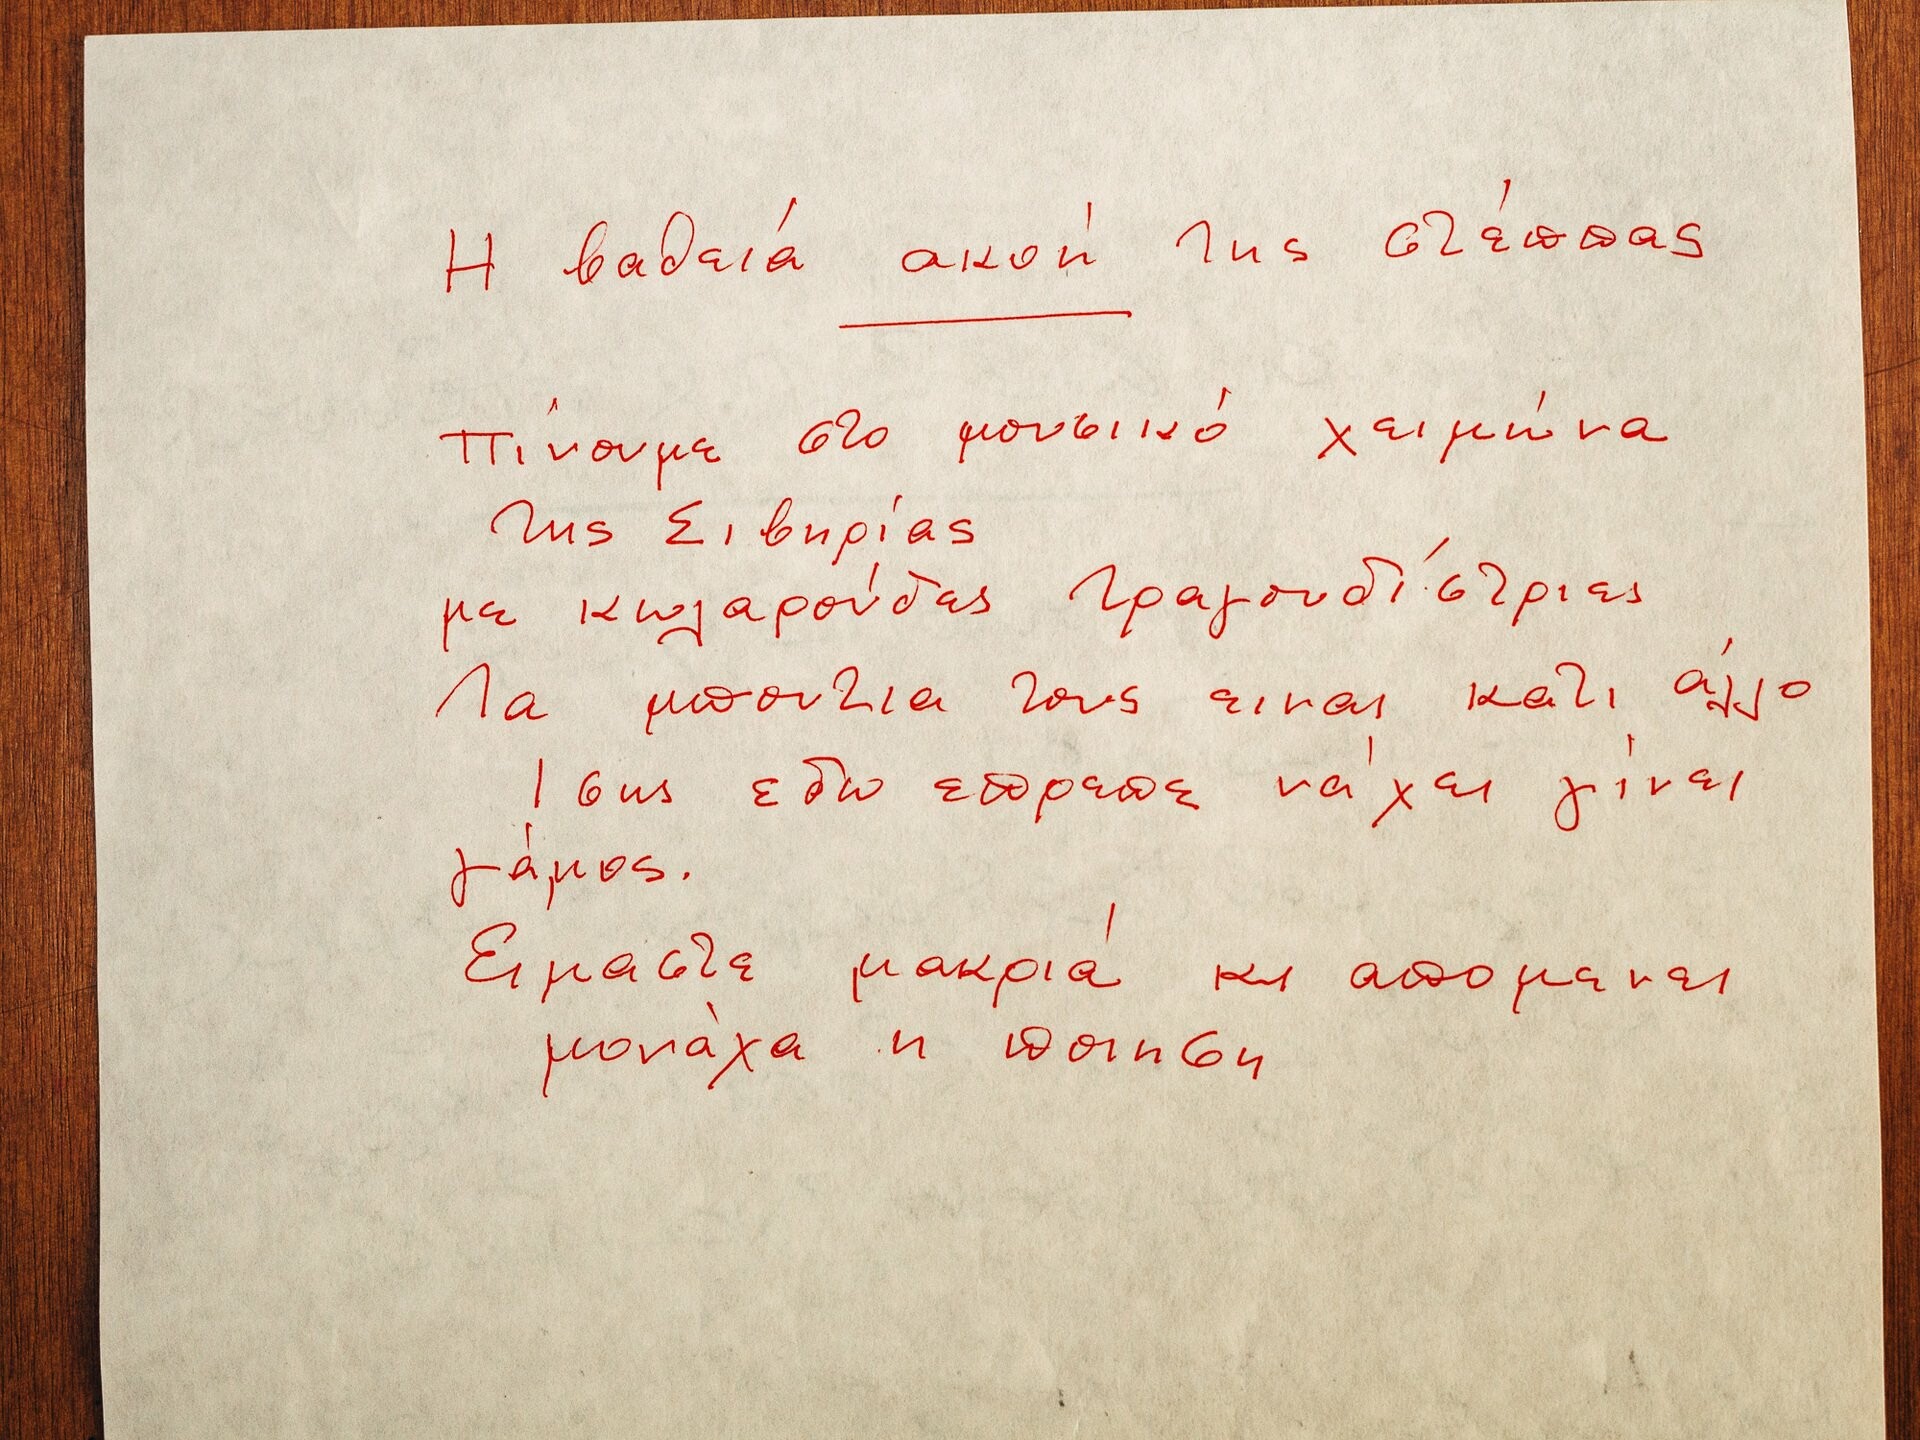 Η βαθειά ακοή της στέππας
Πίνουμε στο μουσικό χειμώνα
της Σιβηρίας
με κωλαρούδες τραγουδίστριες
Τα μπουτια τους ειναι κατι άλλο
Ισης εδω επρεπε νά χει γίνει
γάμος.
Ειμαστε μακριά κι απομενει
μονάχα η ποιηση